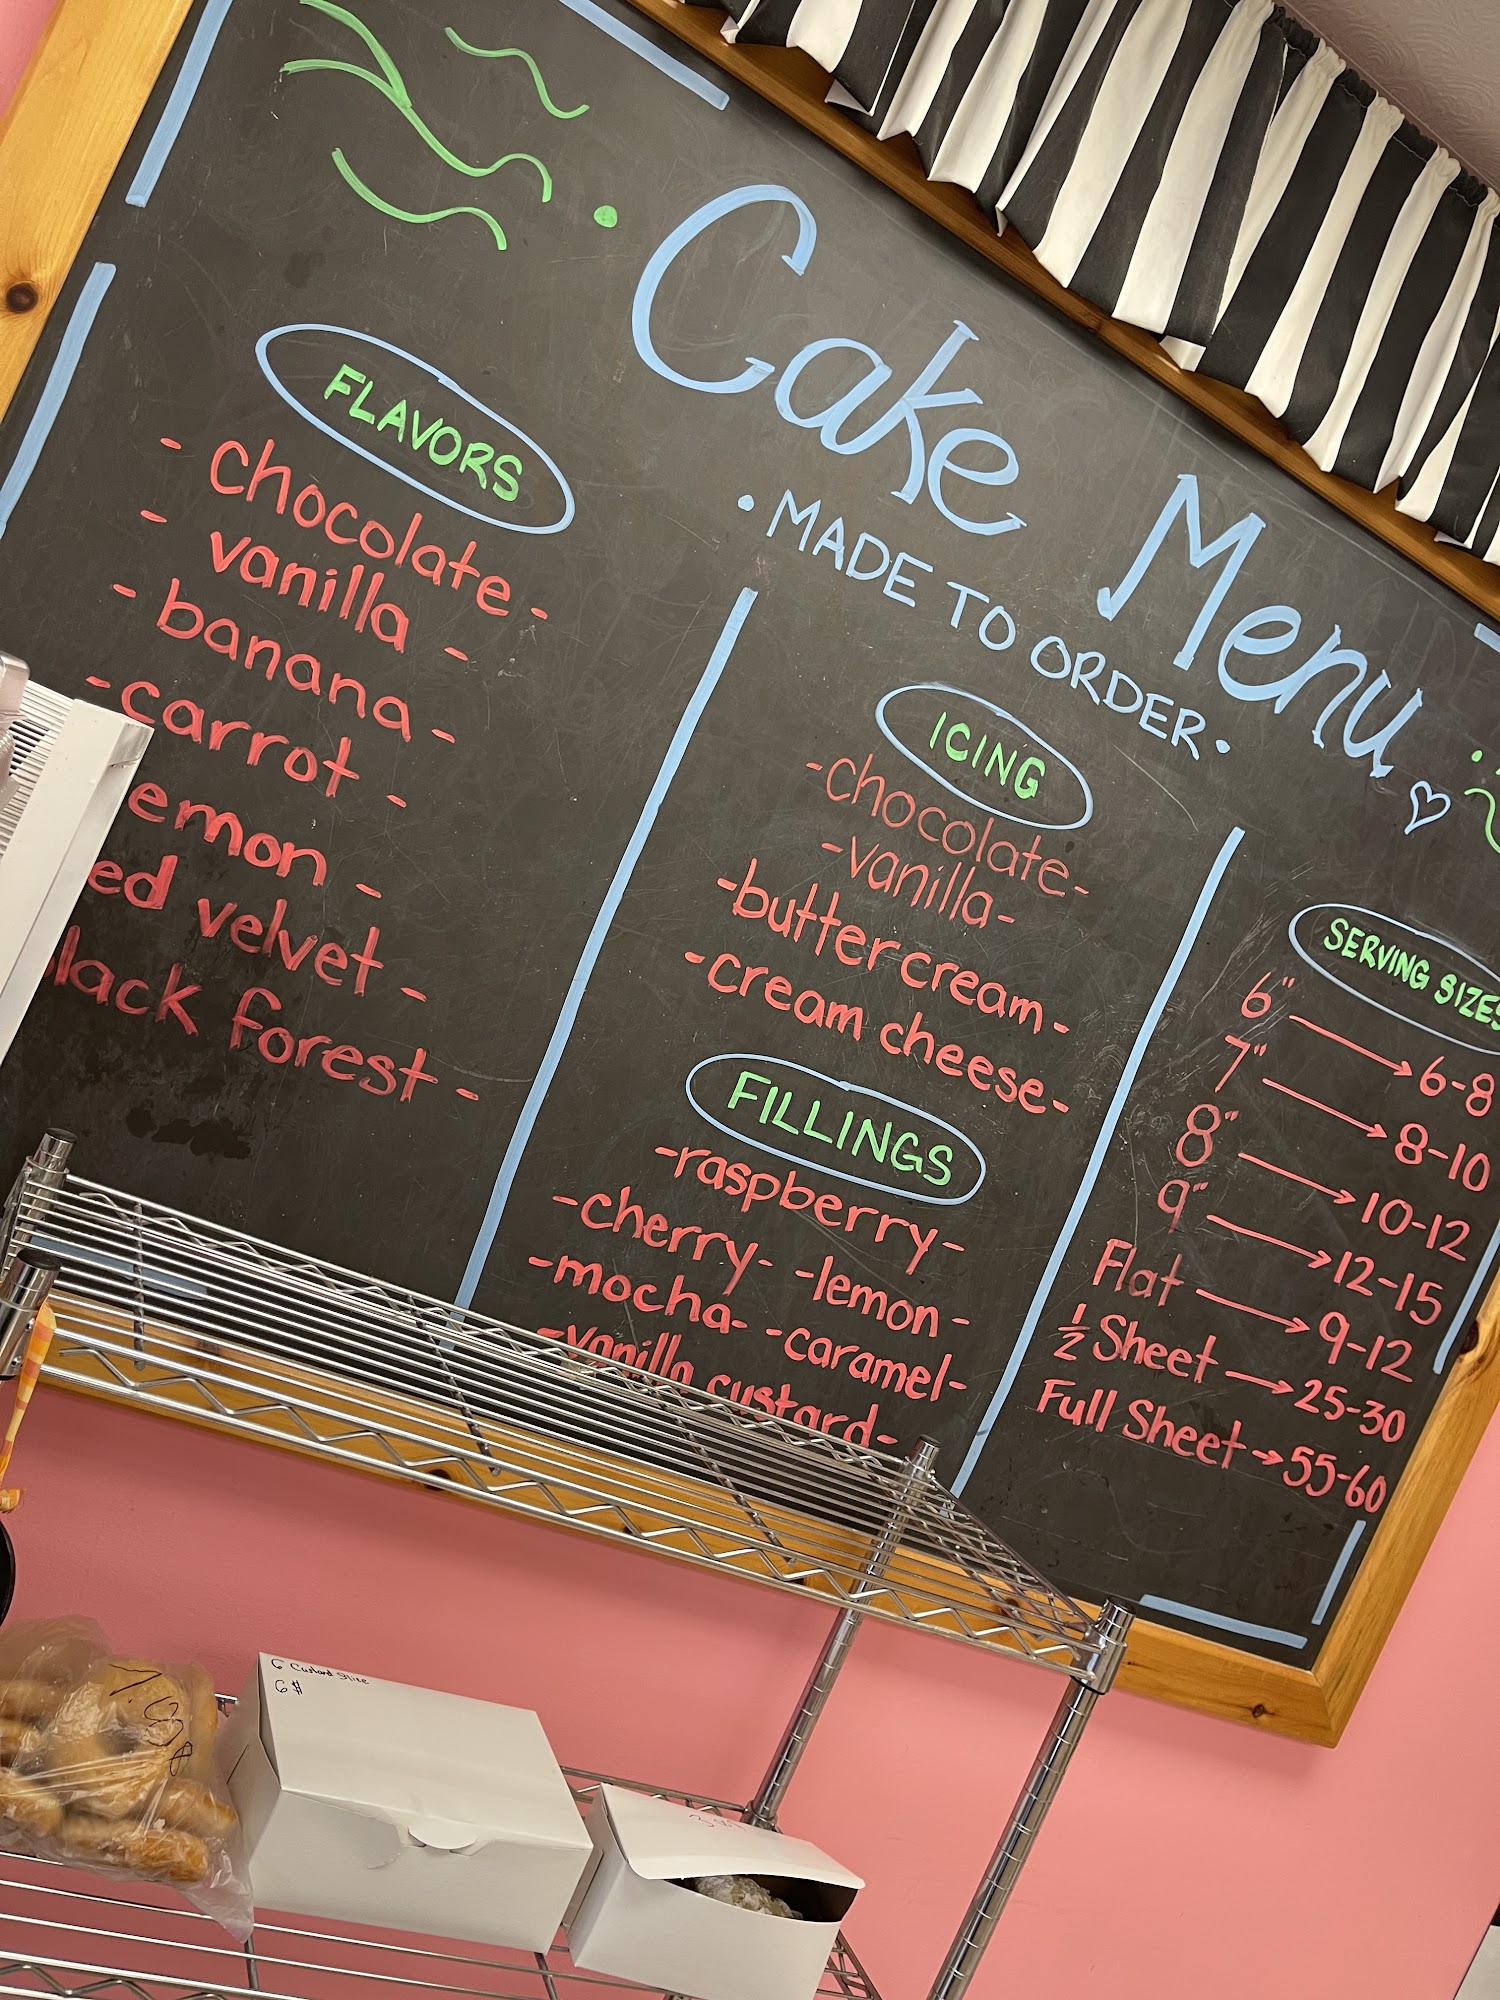 Cake Menu
• MADE TO ORDER •
FLAVORS
- chocolate -
- vanilla -
- banana -
- carrot -
emon -
ed velvet -
lack forest -
ICING
- chocolate -
- vanilla -
- buttercream -
- cream cheese -
FILLINGS
- raspberry -
- cherry - - lemon -
- mocha - - caramel -
- vanilla custard -
SERVING SIZES
6" → 6-8
7" → 8-10
8" → 10-12
9" → 12-15
Flat → 9-12
1/2 Sheet → 25-30
Full Sheet → 55-60
6 Custard Slice
6$